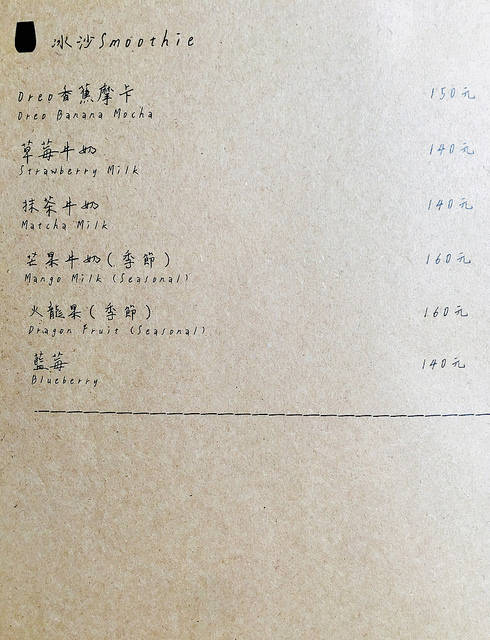 冰沙Smoothie
Oreo香蕉摩卡 150元
Oreo Banana Mocha
草莓牛奶 140元
Strawberry Milk
抹茶牛奶 140元
Matcha Milk
芒果牛奶(季節) 160元
Mango Milk (Seasonal)
火龍果(季節) 160元
Dragon Fruit (Seasonal)
藍莓 140元
Blueberry